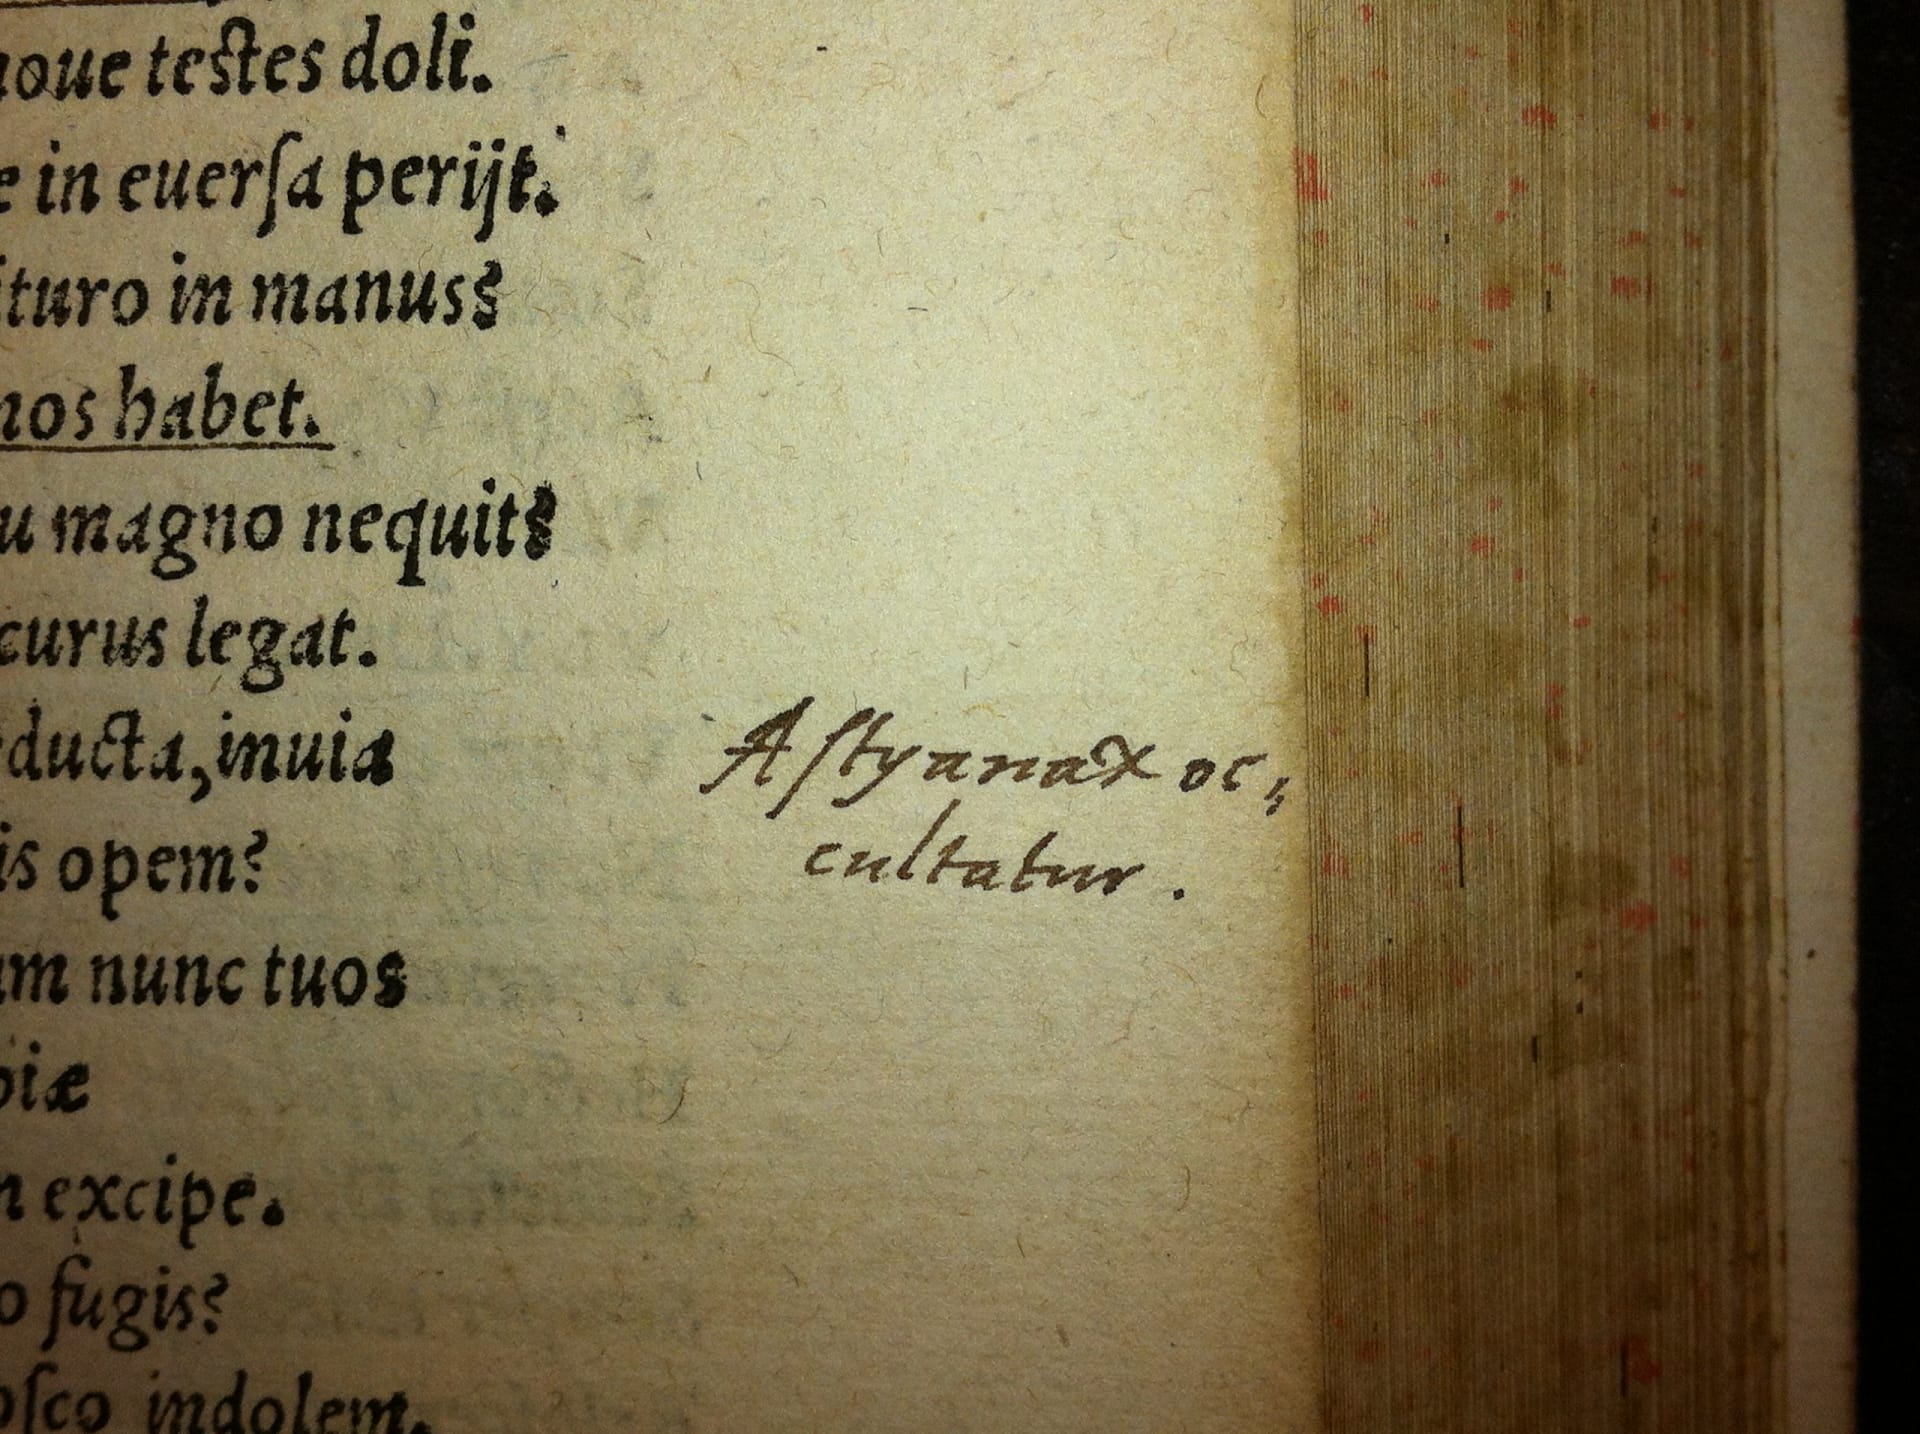 oue teſtes doli.
e in euerſa perijt.
ituro in manus?
nos habet.
u magno nequit?
curus legat.
ducta, inuia
Aſtyanax oc⹀
cultatur.
is opem?
am nunc tuos
piæ
n excipe.
o fugis?
oſco indolem.